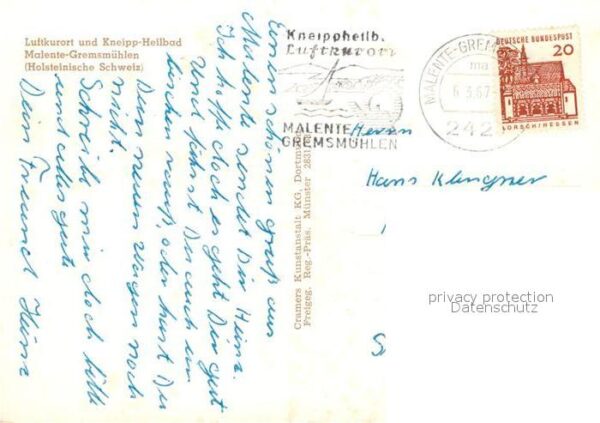 Luftkurort und Kneipp-Heilbad
Malente-Gremsmühlen
(Holsteinische Schweiz)
Einen schönen Gruß aus
Malente sendet Dir Heinz.
Ich hoffe doch es geht Dir gut
und fährst Du auch ein
bischen raus, oder hast Du
Dein neuen Wagen noch
nicht.
Schreibe mir doch bitte
und alles gute
Dein Freund Heinz
Cramers Kunstanstalt KG, Dortmund
Freigeg. Reg.-Präs. Münster
Kneippheilb.
Luftkurort
MALENTE
GREMSMÜHLEN
MALENTE-GREM
6.3.67
242
DEUTSCHE BUNDESPOST
20
LORSCH/HESSEN
Herrn
Hans Klingner
privacy protection
Datenschutz